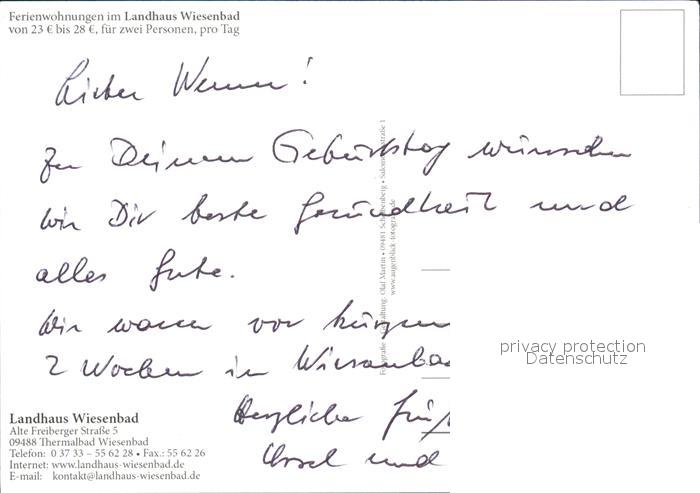 Ferienwohnungen im Landhaus Wiesenbad
von 23 € bis 28 €, für zwei Personen, pro Tag
Lieber Werner!
Zu Deinem Geburtstag wünschen
wir Dir beste Gesundheit und
alles Gute.
Wir waren vor kurzem
2 Wochen in Wiesenba
Herzliche Grüß
Ursel und
www.augenblick-fotografie.de
privacy protection
Datenschutz
Landhaus Wiesenbad
Alte Freiberger Straße 5
09488 Thermalbad Wiesenbad
Telefon: 0 37 33 – 55 62 28 • Fax.: 55 62 26
Internet: www.landhaus-wiesenbad.de
E-mail: kontakt@landhaus-wiesenbad.de